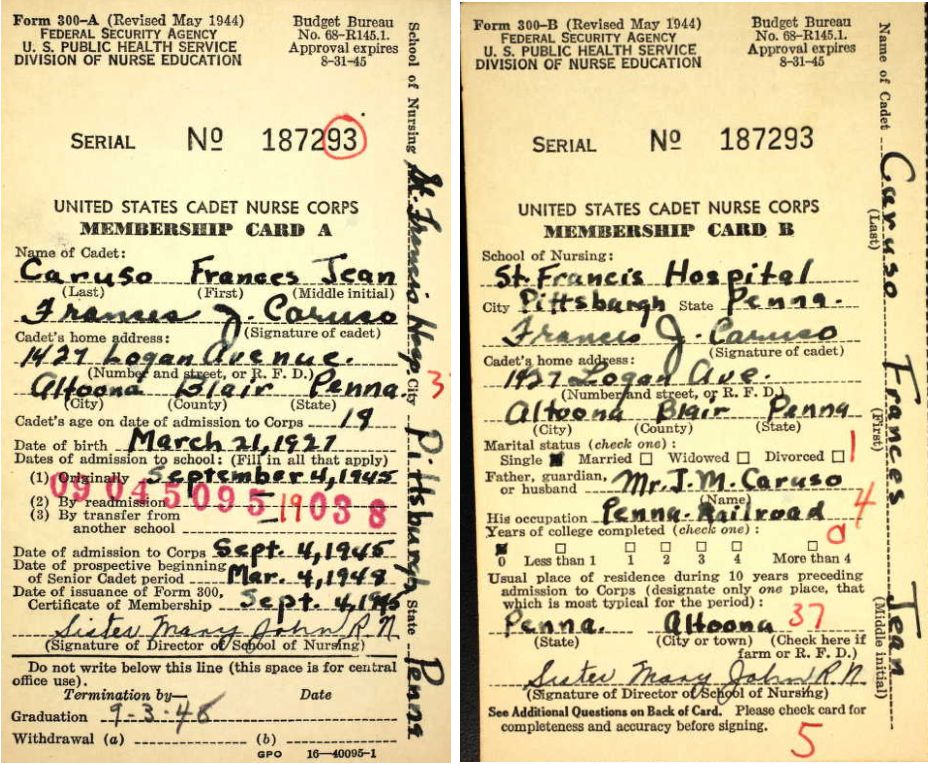 Form 300-A (Revised May 1944)
FEDERAL SECURITY AGENCY
U. S. PUBLIC HEALTH SERVICE
DIVISION OF NURSE EDUCATION
Budget Bureau
No. 68-R145.1.
Approval expires
8-31-45
SERIAL No 187293
UNITED STATES CADET NURSE CORPS
MEMBERSHIP CARD A
Name of Cadet:
Caruso Frances Jean
(Last) (First) (Middle initial)
Frances J. Caruso
(Signature of cadet)
Cadet's home address:
1427 Logan Avenue.
(Number and street, or R. F. D.)
Altoona Blair Penna.
(City) (County) (State)
Cadet's age on date of admission to Corps 19
Date of birth March 21, 1927
Dates of admission to school: (Fill in all that apply)
(1) Originally September 4, 1945
(2) By readmission
(3) By transfer from
another school
09 04 5 095 19038
Date of admission to Corps Sept. 4, 1945
Date of prospective beginning
of Senior Cadet period Mar. 4, 1948
Date of issuance of Form 300,
Certificate of Membership Sept. 4, 1945
Sister Mary John R.N
(Signature of Director of School of Nursing)
Do not write below this line (this space is for central
office use).
Termination by— Date
Graduation 9-3-48
Withdrawal (a) (b)
GPO 16—40095-1
School of Nursing St. Francis Hosp. City Pittsburgh State Penna
3
Form 300-B (Revised May 1944)
FEDERAL SECURITY AGENCY
U. S. PUBLIC HEALTH SERVICE
DIVISION OF NURSE EDUCATION
Budget Bureau
No. 68-R145.1.
Approval expires
8-31-45
SERIAL No 187293
UNITED STATES CADET NURSE CORPS
MEMBERSHIP CARD B
School of Nursing:
St. Francis Hospital
City Pittsburgh State Penna.
Frances J. Caruso
(Signature of cadet)
Cadet's home address:
1427 Logan Ave.
(Number and street, or R. F. D.)
Altoona Blair Penna
(City) (County) (State)
Marital status (check one):
Single Married Widowed Divorced 1
Father, guardian,
or husband Mr. J. M. Caruso
(Name)
His occupation Penna. Railroad 4
Years of college completed (check one): 0
0 Less than 1 1 2 3 4 More than 4
Usual place of residence during 10 years preceding
admission to Corps (designate only one place, that
which is most typical for the period):
Penna. Altoona 37
(State) (City or town) (Check here if
farm or R. F. D.)
Sister Mary John R.N.
(Signature of Director of School of Nursing)
See Additional Questions on Back of Card. Please check card for
completeness and accuracy before signing.
5
Name of Cadet Caruso Frances Jean
(Last) (First) (Middle initial)